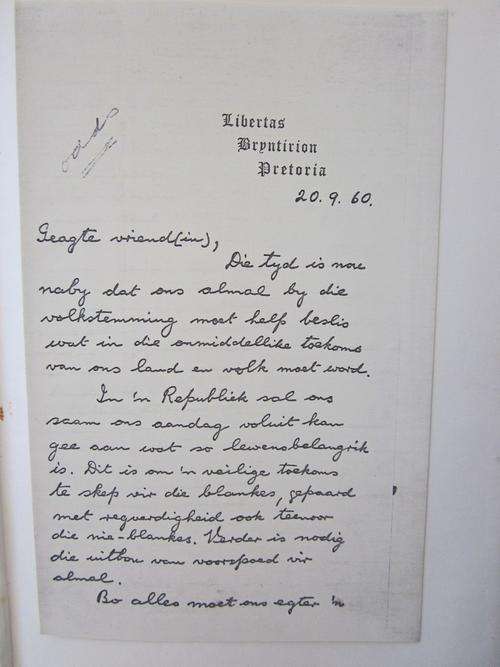 Libertas
Bryntirion
Pretoria
20. 9. 60.
Geagte vriend(in),
Die tyd is nou
naby dat ons almal by die
volkstemming moet help beslis
wat in die onmiddellike toekoms
van ons land en volk moet word.
In 'n Republiek sal ons
saam ons aandag voluit kan
gee aan wat so lewensbelangrik
is. Dit is om 'n veilige toekoms
te skep vir die blankes, gepaard
met regverdigheid ook teenoor
die nie-blankes. Verder is nodig
die uitbou van voorspoed vir
almal.
Bo alles moet ons egter 'n